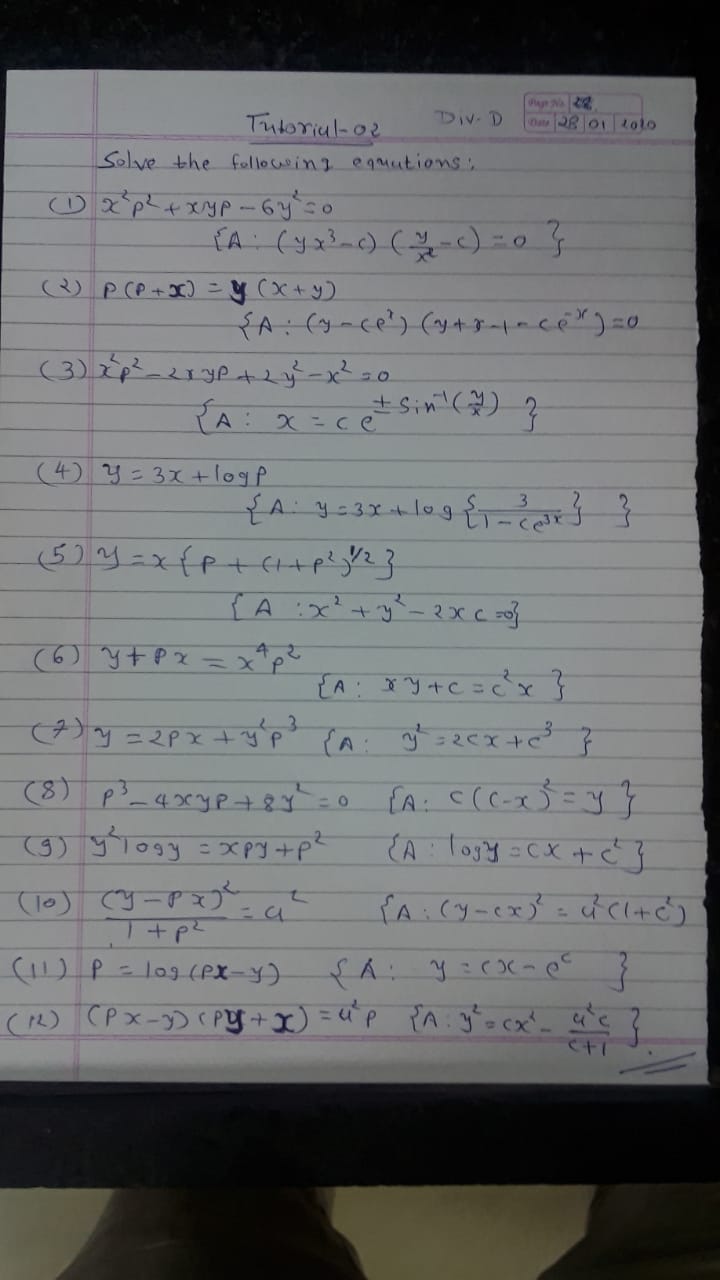 Page No. 28
Tutorial-02 Div. D Date 28 01 2020
Solve the following equations:
(1) x²p² + xyp - 6y² = 0
{A : (yx³-c) (y/x² - c) = 0 }
(2) p(p+x) = y (x+y)
{A : (y-ceˣ) (y+x-1-ce⁻ˣ)=0
(3) x²p² - 2xyp + 2y² - x² = 0
{A : x = c e^(± Sin⁻¹(y/x)) }
(4) y = 3x + log p
{A : y = 3x + log { 3/(1-ce³ˣ) } }
(5) y = x { p + (1+p²)^1/2 }
{A : x² + y² - 2xc = 0}
(6) y + px = x⁴p²
{A : xy + c = c²x }
(7) y = 2px + y²p³ {A : y² = 2cx + c³ }
(8) p³ - 4xyp + 8y² = 0 {A : c(c-x)² = y }
(9) y² log y = xpy + p² {A : log y = cx + c² }
(10) (y-px)²/(1+p²) = a² {A : (y-cx)² = a²(1+c²)
(11) p = log (px-y) {A : y = cx - eᶜ }
(12) (px-y) (py+x) = a²p {A : y² = cx² - a²c/(c+1) }